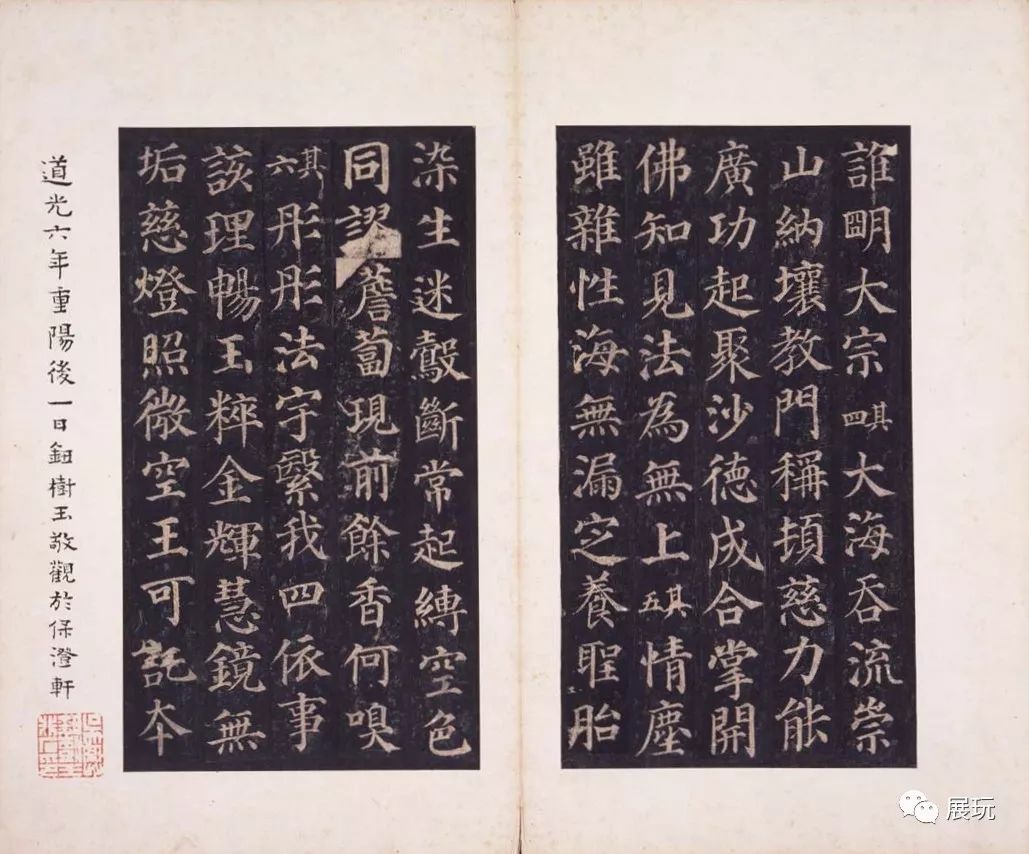 誰明大宗其四大海吞流崇
山納壤教門稱頓慈力能
廣功起聚沙德成合掌開
佛知見法為無上其五情塵
雖雜性海無漏定養聖胎
染生迷縠斷常起縛空色
同謬薝蔔現前餘香何嗅
其六彤彤法宇繄我四依事
該理暢玉粹金輝慧鏡無
垢慈燈照微空王可託本
道光六年重陽後一日鈕樹玉敬觀於保澄軒
展玩